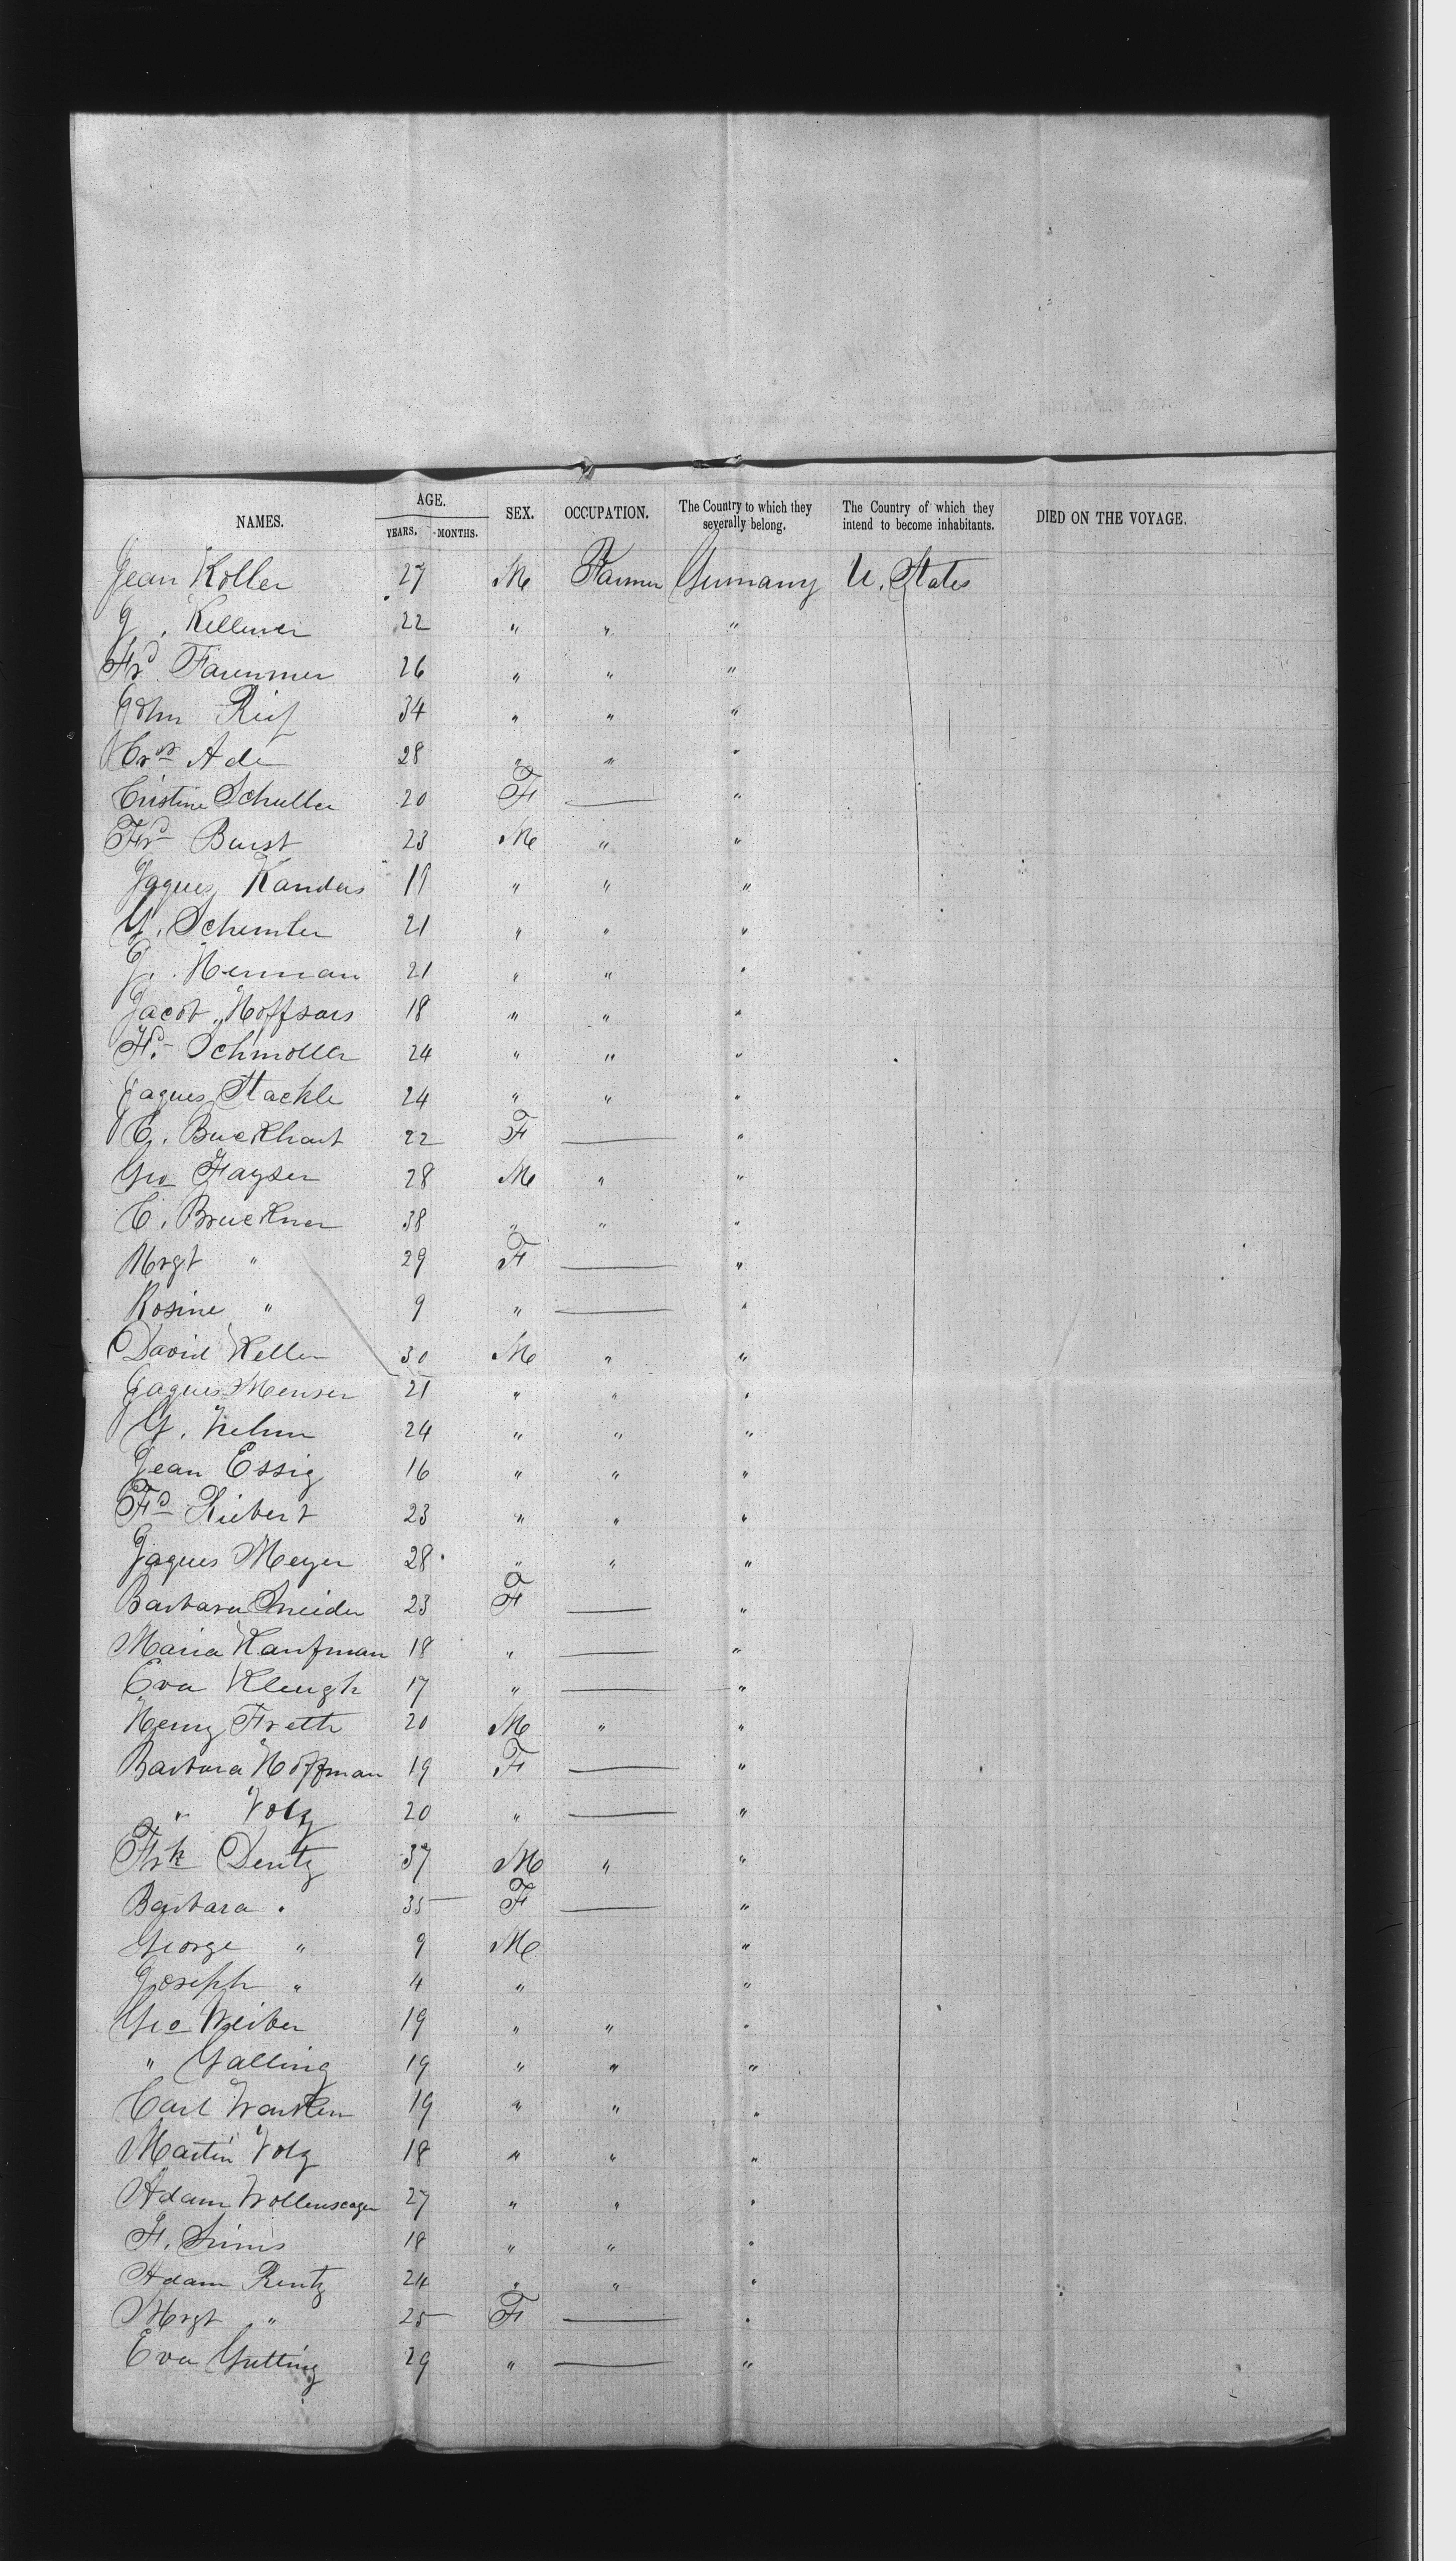 NAMES. AGE. SEX. OCCUPATION. The Country to which they severally belong. The Country of which they intend to become inhabitants. DIED ON THE VOYAGE.
YEARS. MONTHS.
Jean Koller 27 M Farmer Germany U. States
J. Kellmer 22 " " "
Frd. 26 " " "
John Reif 34 " " "
Crn Ade 28 " " "
Cristine Schuller 20 F — "
Frd Burst 23 M " "
Jaques Kanders 19 " " "
G. 21 " " "
J. Herman 21 " " "
Jacob Hoffsars 18 " " "
Fd. Schmoller 24 " " "
Jaques Stachle 24 " " "
C. Buckhart 22 F — "
Geo Fayser 28 M " "
C. Bruckner 38 " " "
Mrgt " 29 F — "
Rosine " 9 " — "
David Keller 30 M " "
Jaques Menser 21 " " "
G. 24 " " "
Jean Essig 16 " " "
Fd Siebert 23 " " "
Jaques Meyer 28 " " "
Barbara Sneider 23 F — "
Maria Kaufman 18 " — "
Eva Klough 17 " — "
Henry Freth 20 M " "
Barbara Hoffman 19 F — "
" Volz 20 " — "
Frk Dentz 37 M " "
Barbara " 35 F — "
George " 9 M "
Joseph " 4 " "
Geo Weiber 19 " " "
" Galling 19 " " "
Carl 19 " " "
Martin Volz 18 " " "
Adam Wollenscager 27 " " "
F. Simms 18 " " "
Adam Rentz 24 " " "
Mrgt " 25 F — "
Eva Gutting 29 " — "